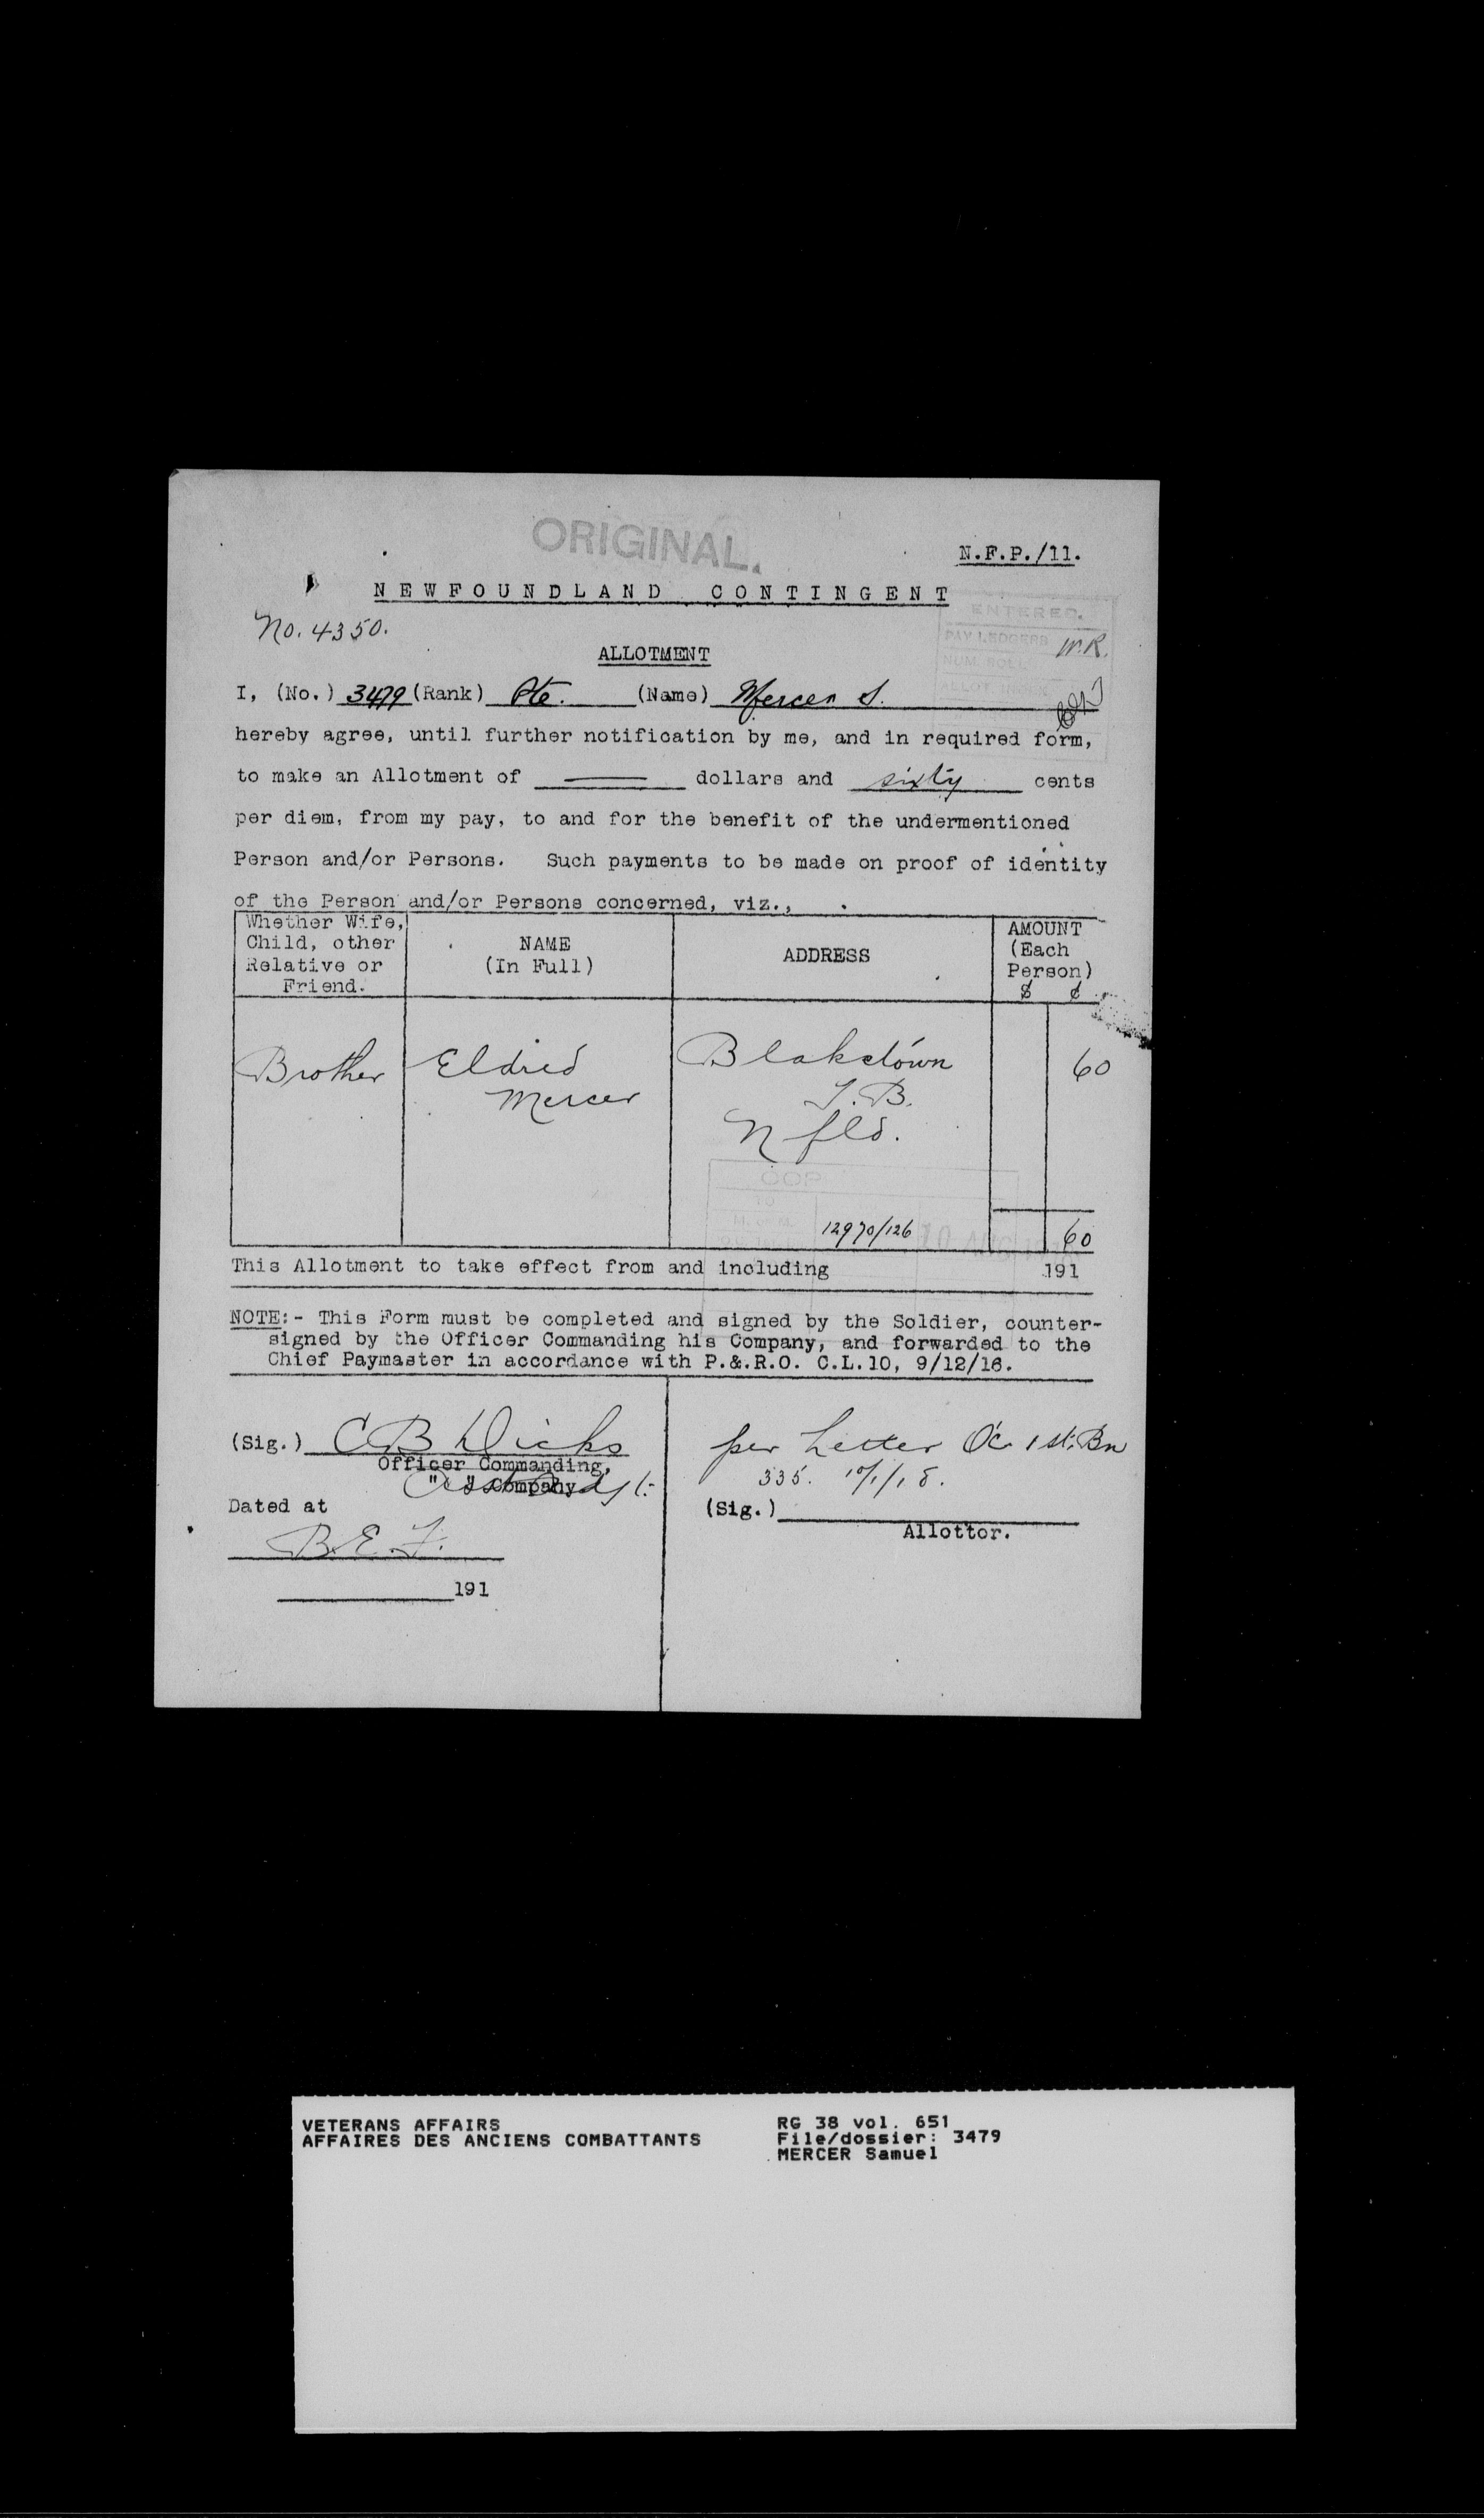 ORIGINAL.
N.F.P./11.
NEWFOUNDLAND CONTINGENT
No. 4350.
ENTERED.
PAY LEDGERS W.R.
NUM. ROLL
ALLOT. INDEX
ALLOTMENT
I, (No.) 3479 (Rank) Pte. (Name) Mercer S.
hereby agree, until further notification by me, and in required form,
to make an Allotment of —— dollars and sixty cents
per diem, from my pay, to and for the benefit of the undermentioned
Person and/or Persons. Such payments to be made on proof of identity
of the Person and/or Persons concerned, viz.,
Whether Wife,
Child, other
Relative or
Friend.
NAME
(In Full)
ADDRESS
AMOUNT
(Each
Person)
$ ¢
Brother
Eldred
Mercer
Blakedown
T.B.
Nfld.
60
12970/126
60
This Allotment to take effect from and including 191
NOTE:- This Form must be completed and signed by the Soldier, counter-
signed by the Officer Commanding his Company, and forwarded to the
Chief Paymaster in accordance with P.&.R.O. C.L.10, 9/12/16.
(Sig.) CB Dicks
Officer Commanding,
" " Company
Asst Adjt.
Dated at
B.E.F.
191
per Letter OC 1st. Bn
335. 10/1/18.
(Sig.)
Allottor.
VETERANS AFFAIRS
AFFAIRES DES ANCIENS COMBATTANTS
RG 38 vol. 651
File/dossier: 3479
MERCER Samuel